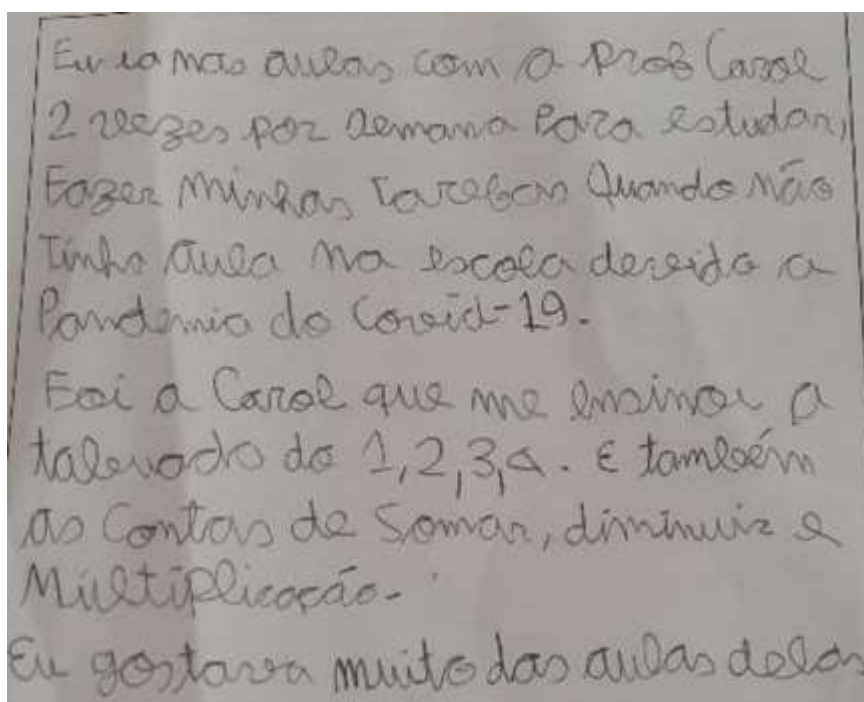 Eu ia nas aulas com a Prof Carol
2 vezes por semana Para estudar,
Fazer minhas Tarefas Quando não
Tinha aula na escola devido a
Pandemia do Covid-19.
Foi a Carol que me ensinou a
tabuada do 1,2,3,4. E também
as Contas de Somar, diminuir e
Multiplicação.
Eu gostava muito das aulas delas